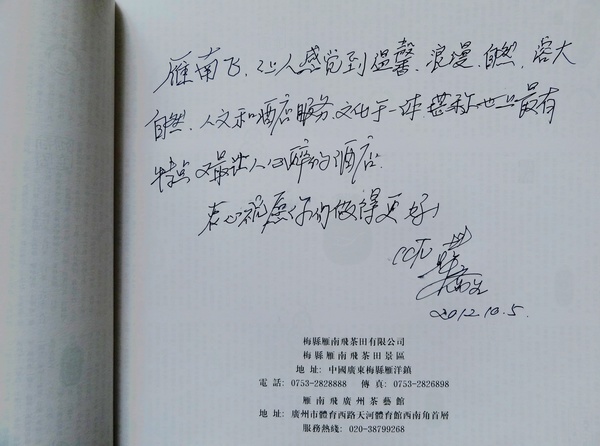 雁南飞,让人感觉到温馨、浪漫、自然,容大
自然、人文和酒店服务、文化于一体,堪称世上最有
特点又最让人心醉的酒店。
衷心祝愿你们做得更好!
CCTV
2012.10.5.
梅縣雁南飛茶田有限公司
梅縣雁南飛茶田景區
地 址: 中國廣東梅縣雁洋鎮
電 話: 0753-2828888 傳 真: 0753-2826898
雁南飛廣州茶藝館
地 址: 廣州市體育西路天河體育館西南角首層
服務熱綫: 020-38799268